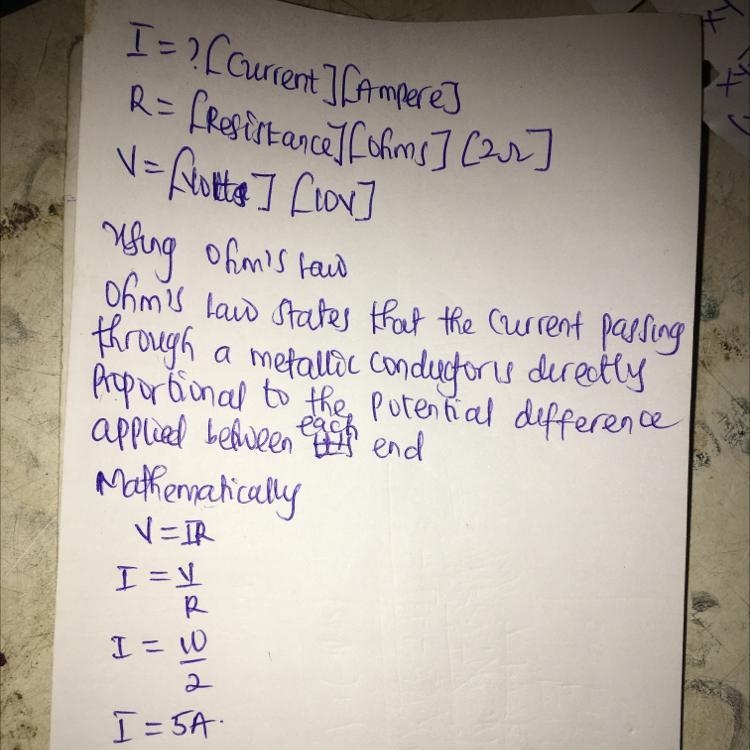 I = ? [Current] [Ampere]
R = [Resistance] [Ohms] [2Ω]
V = [Volts] [10V]
Using Ohm's Law
Ohm's Law states that the current passing
through a metallic conductor is directly
proportional to the potential difference
applied between each end
Mathematically
V = IR
I = V
R
I = 10
2
I = 5A.